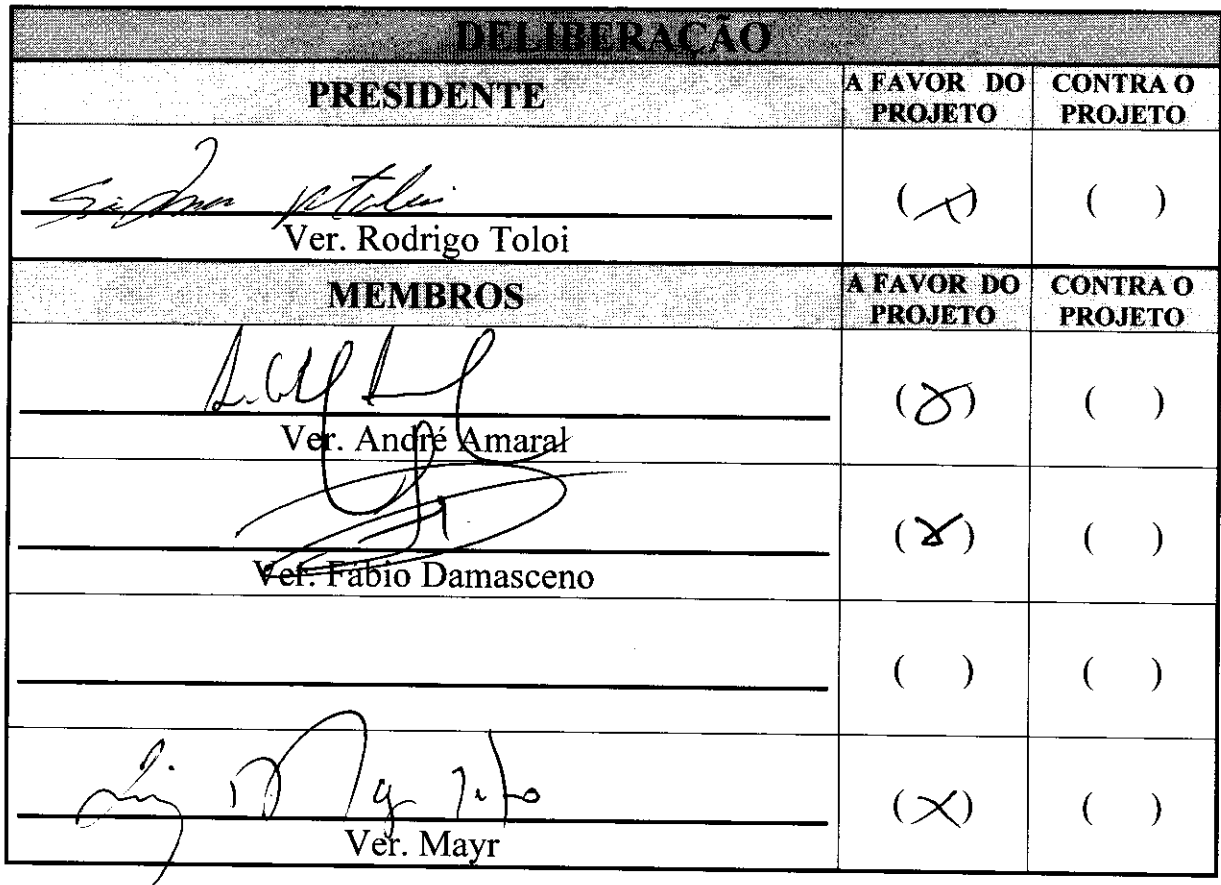 DELIBERAÇÃO
PRESIDENTE A FAVOR DO PROJETO CONTRA O PROJETO
(X) ( )
Ver. Rodrigo Toloi
MEMBROS A FAVOR DO PROJETO CONTRA O PROJETO
(X) ( )
Ver. André Amaral
(X) ( )
Ver. Fábio Damasceno
( ) ( )
(X) ( )
Ver. Mayr